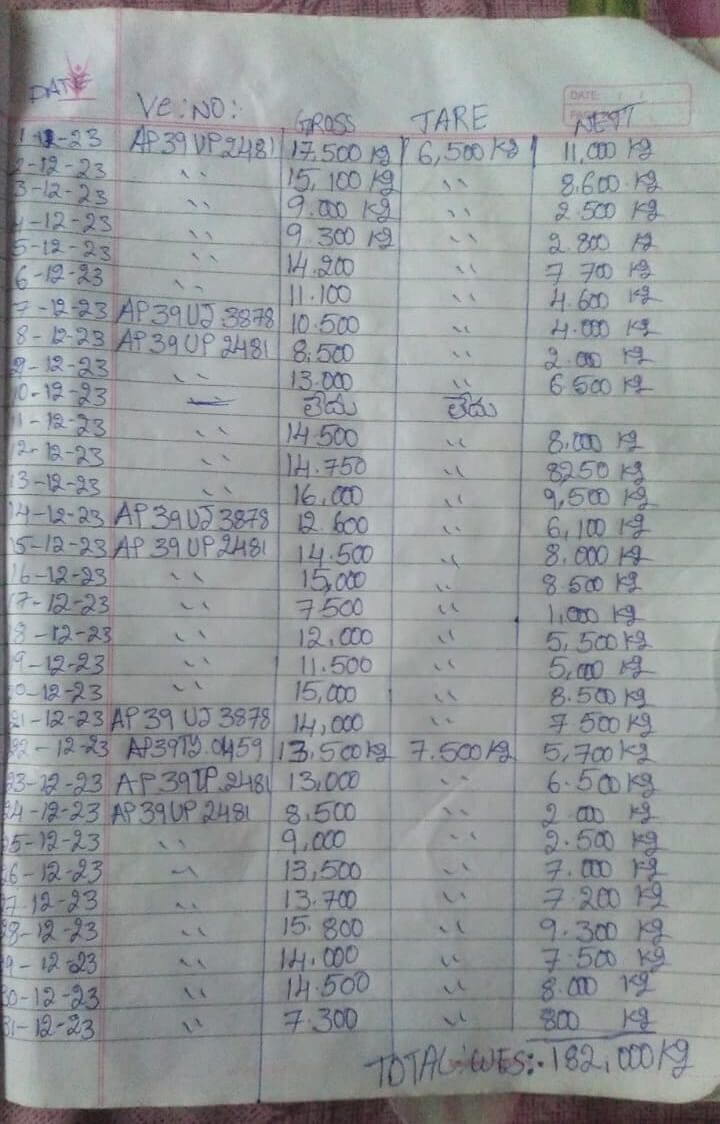 DATE VE:NO: GROSS TARE NETT
DATE: / /
1-12-23 AP39UP2481 17.500 Kg 6,500 Kg 11,000 Kg
2-12-23 ,, 15,100 Kg ,, 8.600 Kg
3-12-23 ,, 9.000 Kg ,, 2.500 Kg
4-12-23 ,, 9.300 Kg ,, 2.800 Kg
5-12-23 ,, 14.200 ,, 7 700 Kg
6-12-23 ,, 11.100 ,, 4.600 Kg
7-12-23 AP39UJ3878 10.500 ,, 4.000 Kg
8-12-23 AP39UP2481 8,500 ,, 2.000 Kg
9-12-23 ,, 13.000 ,, 6.500 Kg
10-12-23 — లేదు లేదు
11-12-23 ,, 14.500 ,, 8.000 Kg
12-12-23 ,, 14.750 ,, 8250 Kg
13-12-23 ,, 16,000 ,, 9,500 Kg
14-12-23 AP39UJ3878 12.600 ,, 6,100 Kg
15-12-23 AP39UP2481 14.500 ,, 8.000 Kg
16-12-23 ,, 15,000 ,, 8.500 Kg
17-12-23 ,, 7500 ,, 1,000 Kg
18-12-23 ,, 12,000 ,, 5,500 Kg
19-12-23 ,, 11.500 ,, 5,000 Kg
20-12-23 ,, 15,000 ,, 8.500 Kg
21-12-23 AP39UJ3878 14,000 ,, 7500 Kg
22-12-23 AP39TY.0459 13,500 Kg 7.500 Kg 5,700 Kg
23-12-23 AP39UP.2481 13,000 ,, 6.500 Kg
24-12-23 AP39UP2481 8,500 ,, 2 000 Kg
25-12-23 ,, 9,000 ,, 2.500 Kg
26-12-23 ,, 13,500 ,, 7.000 Kg
27-12-23 ,, 13.700 ,, 7.200 Kg
28-12-23 ,, 15.800 ,, 9.300 Kg
29-12-23 ,, 14.000 ,, 7.500 Kg
30-12-23 ,, 14.500 ,, 8.000 Kg
31-12-23 ,, 7.300 ,, 800 Kg
TOTAL WES:- 182,000 Kg